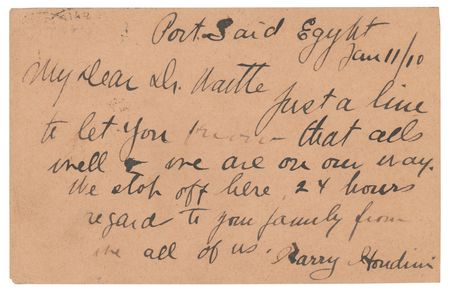 Port Said Egypt
Jan 11/10
My Dear Dr. Waitte
Just a line
to let you know - that alls
well & we are on our way.
We stop off here, 24 hours
regard to your family from
me all of us. Harry Houdini